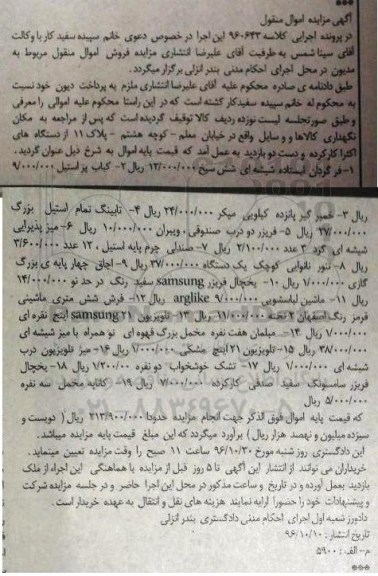 آگهی مزایده اموال منقول
در پرونده اجرایی کلاسه ۹۶۰۶۴۳ این اجرا در خصوص دعوی خانم سپیده سفید کار با وکالت
آقای سینا شمس به طرفیت آقای علیرضا انتشاری مزایده فروش اموال منقول مربوط به
مدیون در محل اجرای احکام مدنی بندر انزلی برگزار میگردد.
طبق دادنامه ی صادره محکوم علیه آقای علیرضا انتشاری ملزم به پرداخت دیون خود نسبت
به محکوم له خانم سپیده سفید کار گشته است که در این راستا محکوم علیه اموالی را معرفی
و طبق صورتجلسه لیست نوزده ردیف کالا توقیف گردیده است که پس از مراجعه به مکان
نگهداری کالاها و و سایل واقع در خیابان معلم - کوچه هشتم - پلاک ۱۱ از دستگاه های
اکثرا کارکرده و دست دو بازدید به عمل آمد که قیمت پایه اموال به شرح ذیل عنوان گردید.
۱- فر گردان ایستاده شیشه ای شش سیخ ۱۲/۰۰۰/۰۰۰ ریال ۲- کباب پز استیل ۹/۰۰۰/۰۰۰
ریال ۳- خمیر گیر پانزده کیلویی میکر ۲۴/۰۰۰/۰۰۰ ریال ۴- تاپینگ تمام استیل بزرگ
۲۷/۰۰۰/۰۰۰ ریال ۵- فریزر دو درب صندوقی ویبران ۱۰/۰۰۰/۰۰۰ ریال ۶- میز پذیرایی
شیشه ای گرد ۳ عدد ۲/۱۰۰/۰۰۰ ریال ۷- صندلی چرم پایه استیل ۱۲ عدد ۳/۶۰۰/۰۰۰
ریال ۸- تنور نانوایی کوچک یک دستگاه ۳۷/۰۰۰/۰۰۰ ریال ۹- اجاق چهار پایه ی بزرگ
گازی ۱/۰۰۰/۰۰۰ ریال ۱۰- یخچال فریزر samsung سفید رنگ در حد نو ۱۴/۰۰۰/۰۰۰
ریال ۱۱- ماشین لباسشویی arglike ۹/۰۰۰/۰۰۰ ریال ۱۲- فرش شش متری ماشینی
قرمز رنگ اصفهان ۲ تخته ۱۱/۰۰۰/۰۰۰ ریال ۱۳- تلویزیون samsung ۲۱ اینچ نقره ای
۱/۰۰۰/۰۰۰ ریال ۱۴- مبلمان هفت نفره مخمل بزرگ قهوه ای نو همراه با میز شیشه ای
۳۸/۰۰۰/۰۰۰ ریال ۱۵- تلویزیون ۲۱ اینچ مشکی ۱/۰۰۰/۰۰۰ ریال ۱۶- میز تلویزیون درب
شیشه ای ۱/۰۰۰/۰۰۰ ریال ۱۷- تشک خوشخواب دو نفره ۱/۲۰۰/۰۰۰ ریال ۱۸- یخچال
فریزر سامسونگ سفید صدفی کارکرده ۷/۰۰۰/۰۰۰ ریال ۱۹- کاناپه مخمل سه نفره
۵/۰۰۰/۰۰۰ ریال
که قیمت پایه اموال فوق الذکر جهت انجام مزایده حدودا ۲۱۳/۹۰۰/۰۰۰ ریال (دویست و
سیزده میلیون و نهصد هزار ریال) برآورد میگردد که این مبلغ قیمت پایه مزایده میباشد.
این دادگستری روز شنبه مورخ ۹۶/۱۰/۳۰ ساعت ۱۱ صبح را وقت مزایده تعیین مینماید.
خریداران می توانند از انتشار این آگهی تا ۵ روز قبل از مزایده با هماهنگی این اجراء از ملک
بازدید بعمل آورده و در تاریخ و ساعت مذکور در محل این اجرا حاضر و در جلسه مزایده شرکت
و پیشنهادات خود را حضورا ارایه نمایند هزینه های نقل و انتقال به عهده خریدار است.
دادورز شعبه اول اجرای احکام مدنی دادگستری بندر انزلی
تاریخ انتشار: ۹۶/۱۰/۱۰
م- الف: ۵۹۰۰